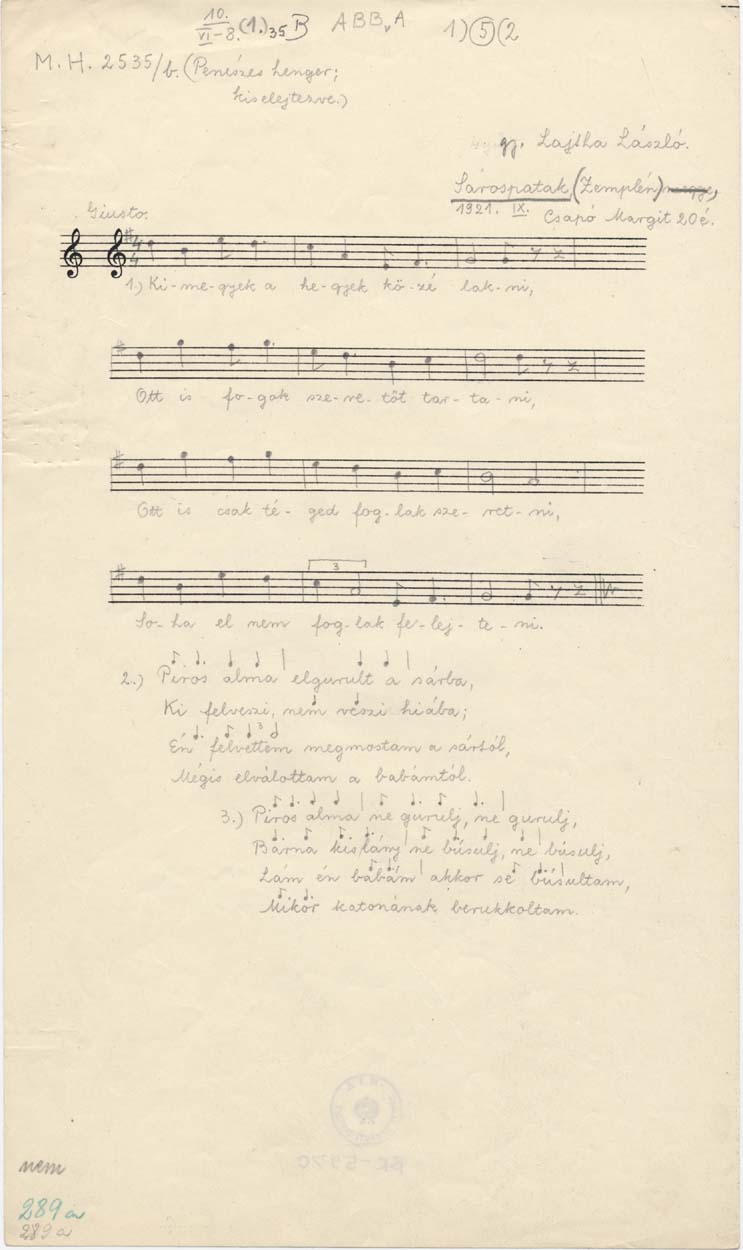 10.
VI-8. (1.)35 B ABBvA 1)(5)(2
M. H. 2535/b. (Penészes henger;
kiselejtezve.)
gy. Lajtha László.
Sárospatak, (Zemplén)
1921. IX. Csapó Margit 20 é.
Giusto.
4
4
1.) Ki-me-gyek a he-gyek kö-zé lak-ni,
Ott is fo-gok sze-re-tőt tar-ta-ni,
Ott is csak té-ged fog-lak sze-ret-ni,
3
So-ha el nem fog-lak fe-lej-te-ni.
2.) Piros alma elgurult a sárba,
Ki felveszi, nem veszi hiába;
3
Én felvettem megmostam a sártól,
Mégis elválottam a babámtól.
3.) Piros alma ne gurulj, ne gurulj,
Barna kislány ne búsulj, ne búsulj,
Lám én babám akkor se búsultam,
Mikor katonának berukkoltam.
nem
289 a
289 a